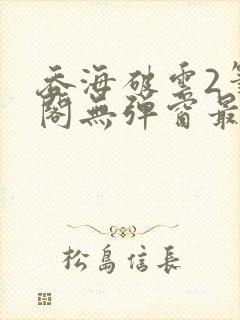 吞海破雲2筆
閣無彈窗最
松島信長